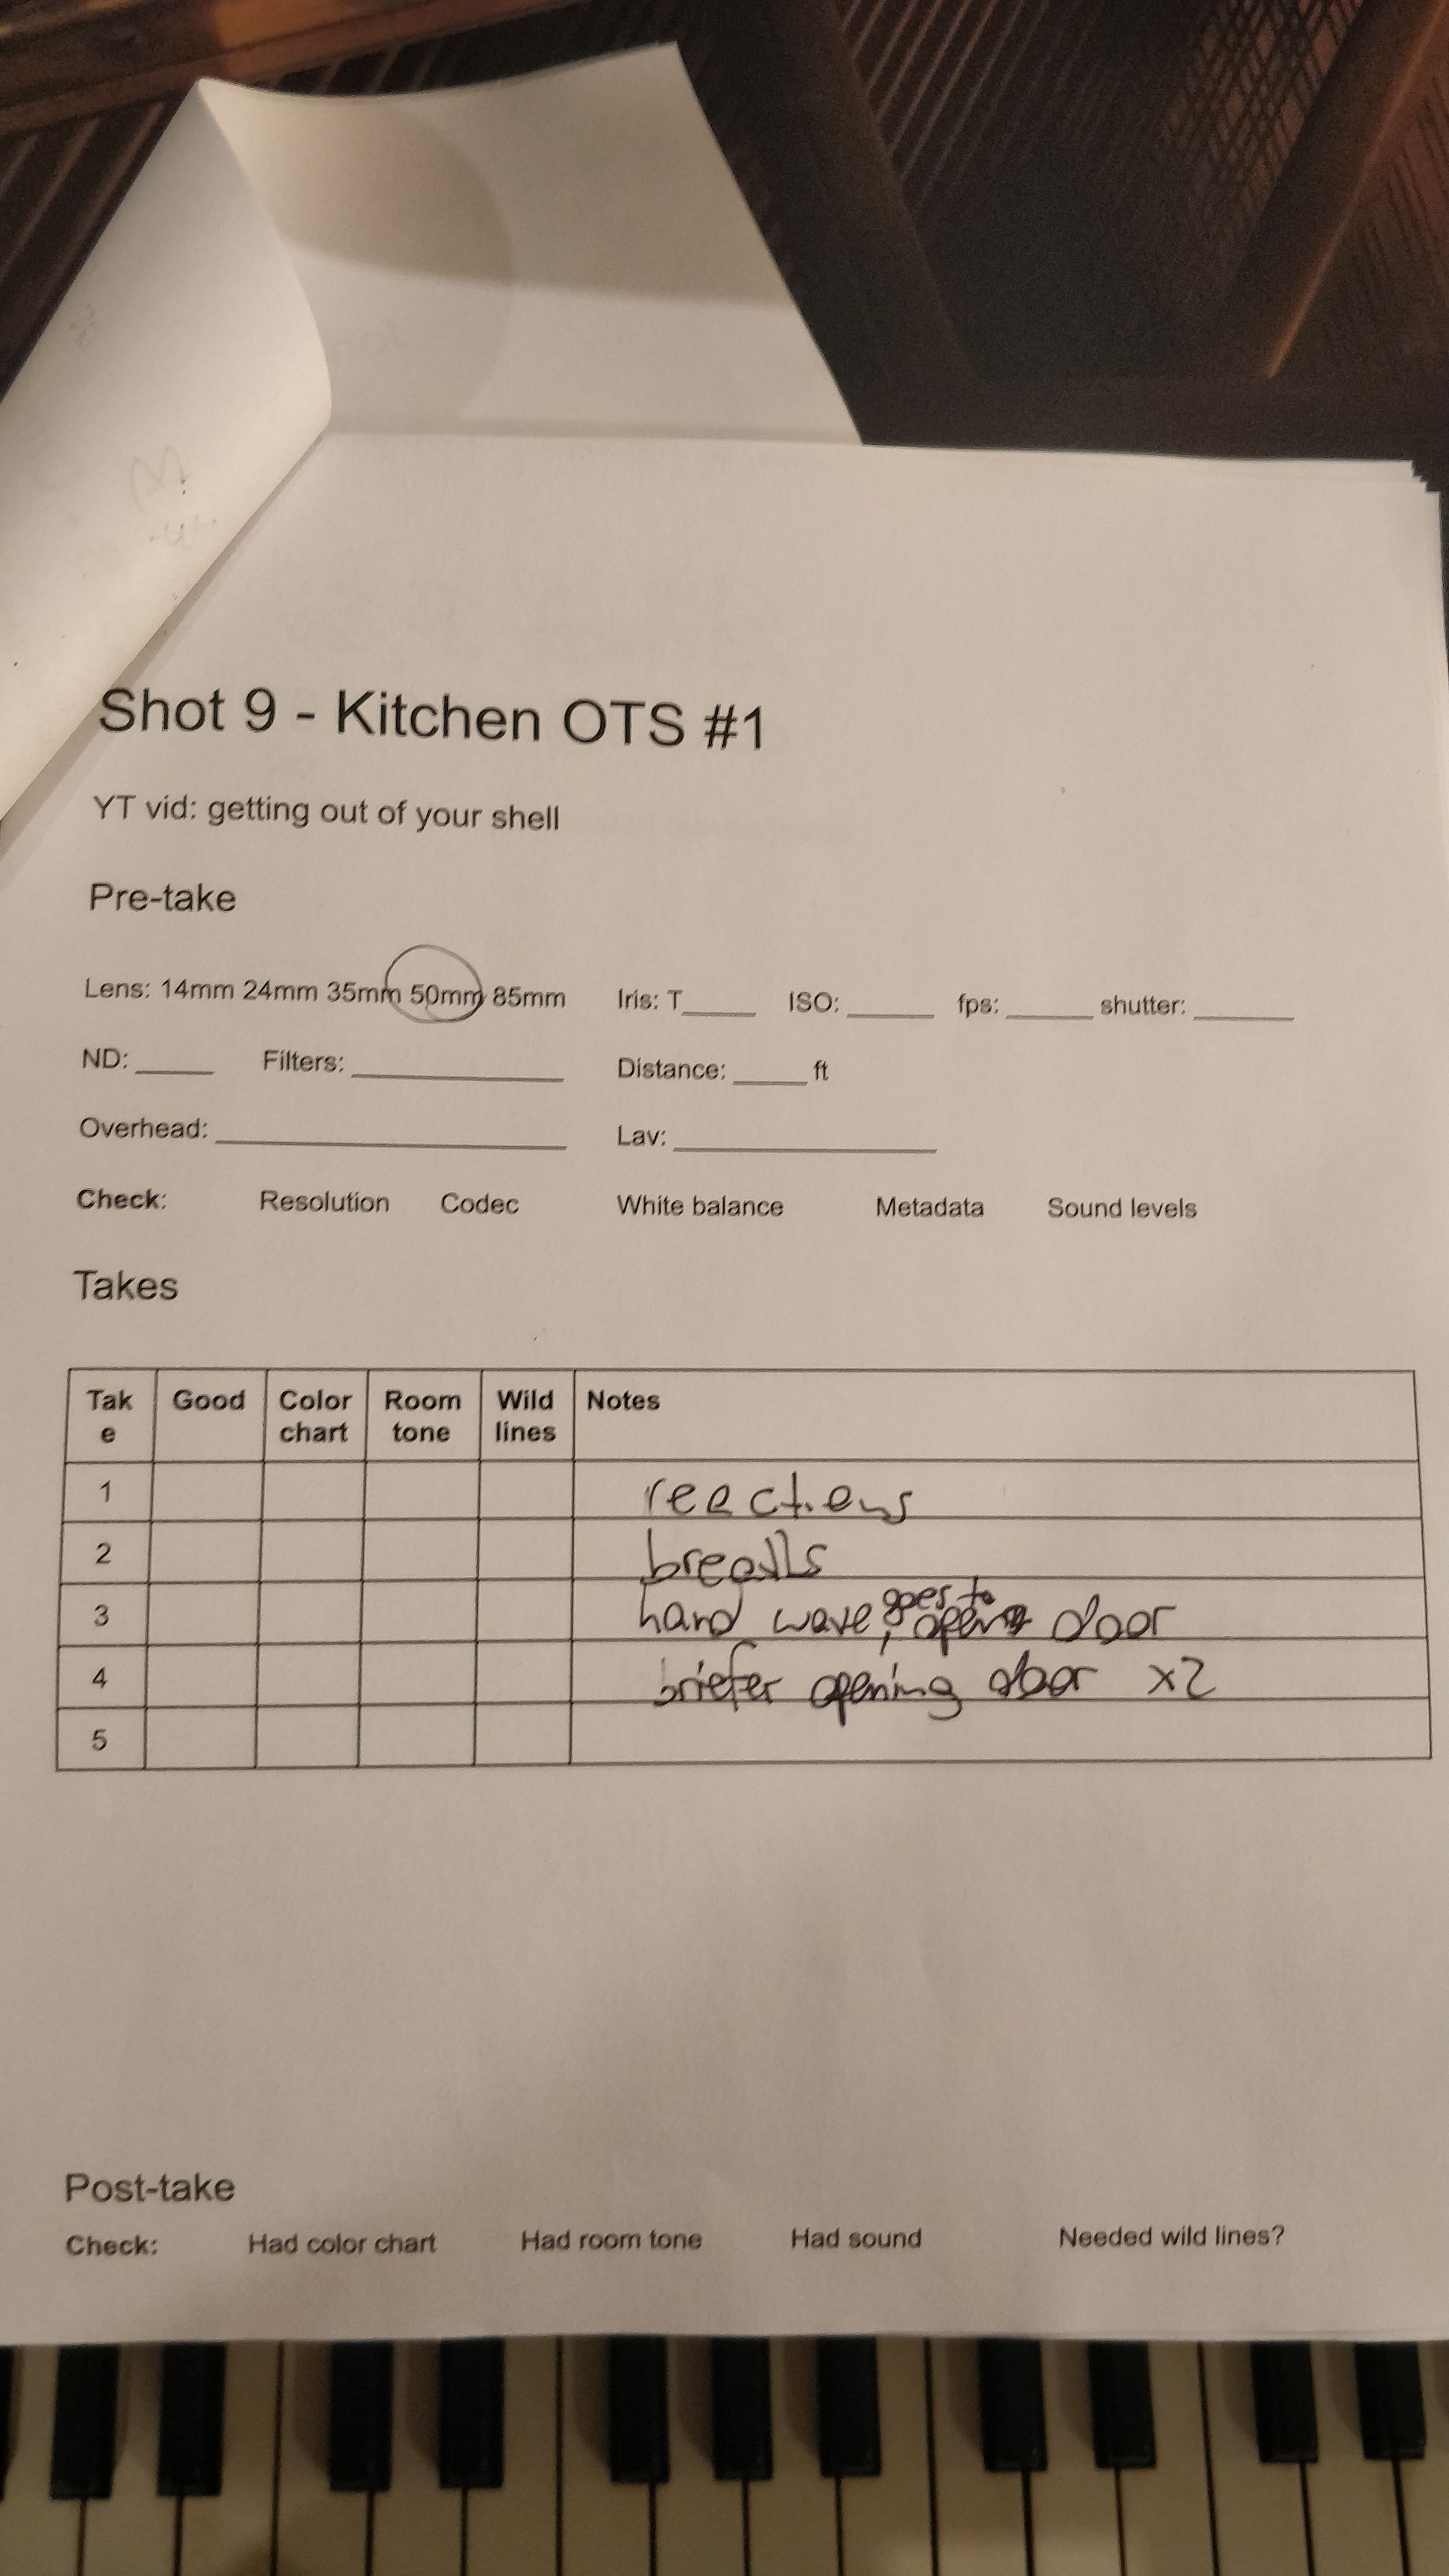 Shot 9 - Kitchen OTS #1
YT vid: getting out of your shell
Pre-take
Lens: 14mm 24mm 35mm 50mm 85mm Iris: T_____ ISO: ______ fps: ______ shutter: _______
ND: _____ Filters: _______________ Distance: _____ ft
Overhead: _________________________ Lav: ___________________
Check: Resolution Codec White balance Metadata Sound levels
Takes
Tak
e Good Color
chart Room
tone Wild
lines Notes
1 reactions
2
3 hand wave, goes to open door
4 briefer opening door x2
5
Post-take
Check: Had color chart Had room tone Had sound Needed wild lines?